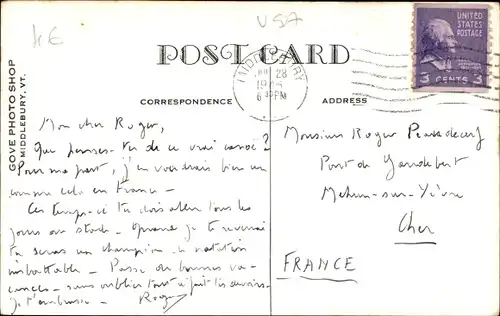 4€
USA
POST CARD
CORRESPONDENCE
ADDRESS
GOVE PHOTO SHOP
MIDDLEBURY, VT.
UNITED STATES
POSTAGE
3 CENTS 3
MIDDLEBURY
28
PM
Mon cher Roger,
Que penses-tu de ce vrai canoë ?
Pour ma part, j'en voudrais bien un
comme cela en France -
Ces temps-ci tu dois aller tous les
jours au stade - Quand je te reverrai
tu seras un champion de natation
imbattable - Passe de bonnes va-
cances - sans oublier tout à fait les devoirs -
je t'embrasse - Roger
Monsieur Roger
Pont de
Mehun-sur-Yèvre
Cher
FRANCE